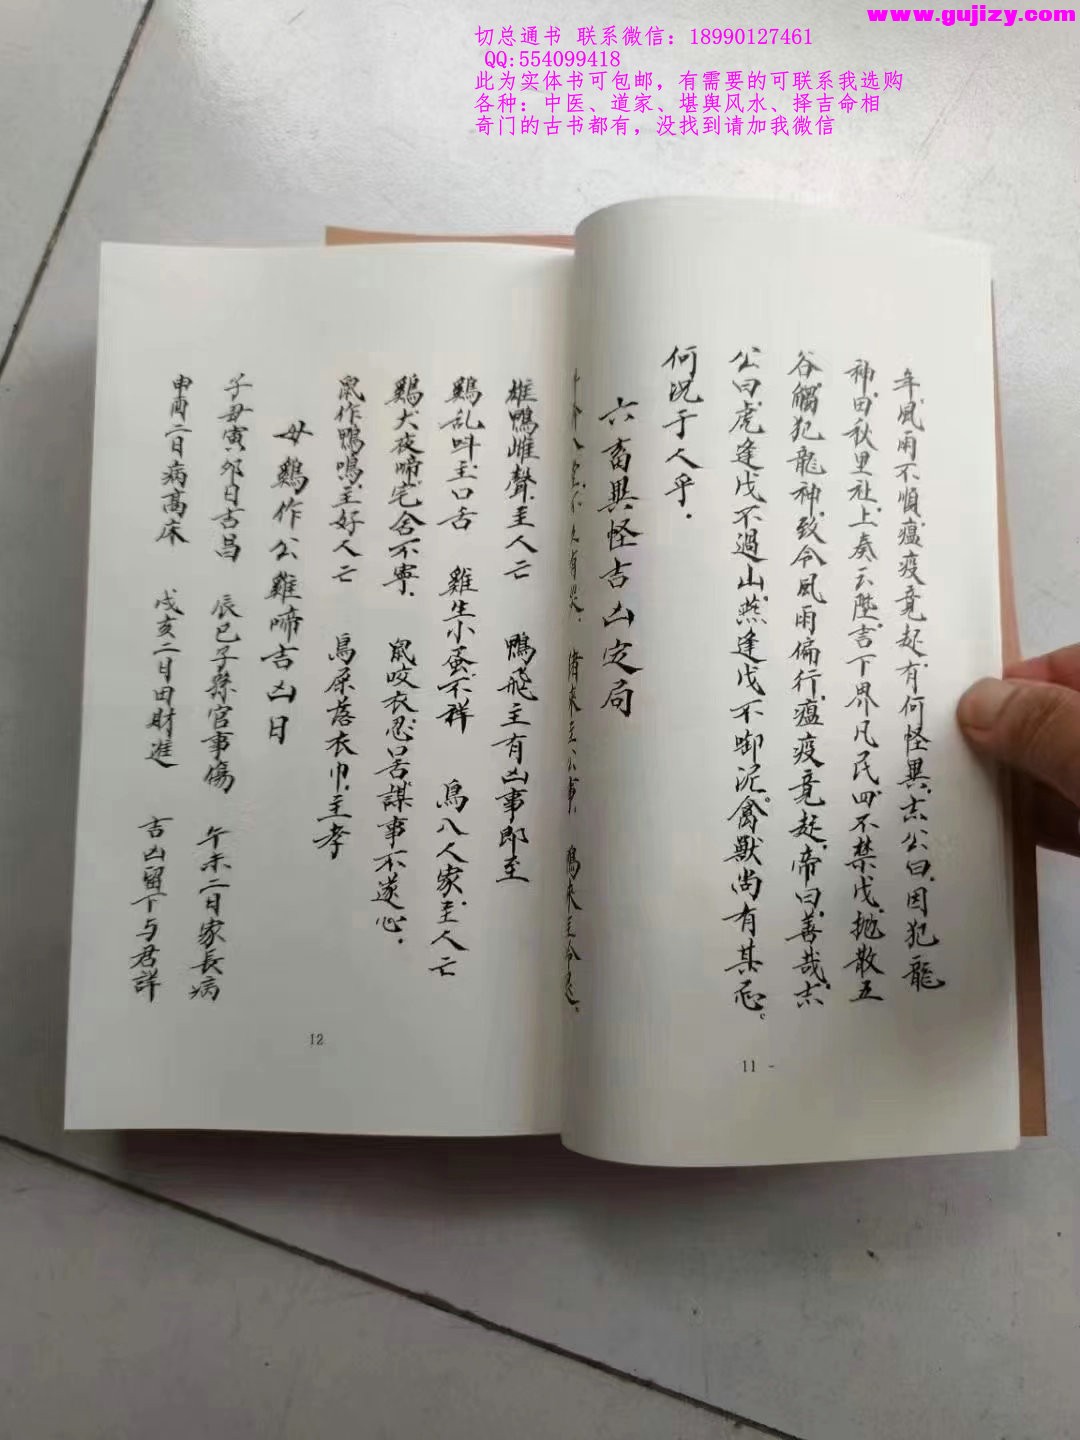 www.gujizy.com
切总通书 联系微信：18990127461
QQ:554099418
此为实体书可包邮，有需要的可联系我选购
各种：中医、道家、堪舆风水、择吉命相
奇门的古书都有，没找到请加我微信
年，風雨不順，瘟疫竟起，有何怪異，志公曰，因犯龍
神，田秋里社，上奏云陛，言下界凡民，四不禁戊，抛散五
谷，觸犯龍神，致令風雨偏行，瘟疫竟起，帝曰，善哉，志
公曰，虎逢戊不過山，燕逢戊不啣泥，禽獸尚有其忌。
何况于人乎．
六畜異怪吉凶定局
猪來主公事 鴉來主
雄鴨雌聲，主人亡 鴨飛主有凶事即至
鷄乱呌，主口舌 雞生小蛋，不祥 鳥入人家，主人亡
鷄犬夜啼，宅舍不寧． 鼠咬衣，忍苦，謀事不遂心．
鼠作鴨鳴，主好人亡 鳥屎落衣巾，主孝
母鷄作公雞啼吉凶日
子丑寅夘日吉昌 辰巳子縣官事傷 午未二日家長病
申酉二日病高床 戌亥二日田財進 吉凶留下与君詳
12
11 -